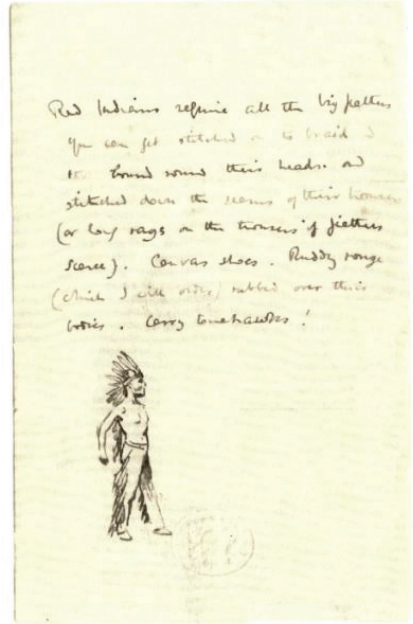 Red Indians require all the big feathers
you can get stitched on to braid &
bound round their heads. and
stitched down the seams of their trousers
(or long rags on the trousers if feathers
scarce). Canvas shoes. Ruddy rouge
(which I will order) rubbed over their
bodies. Carry tomahawks!